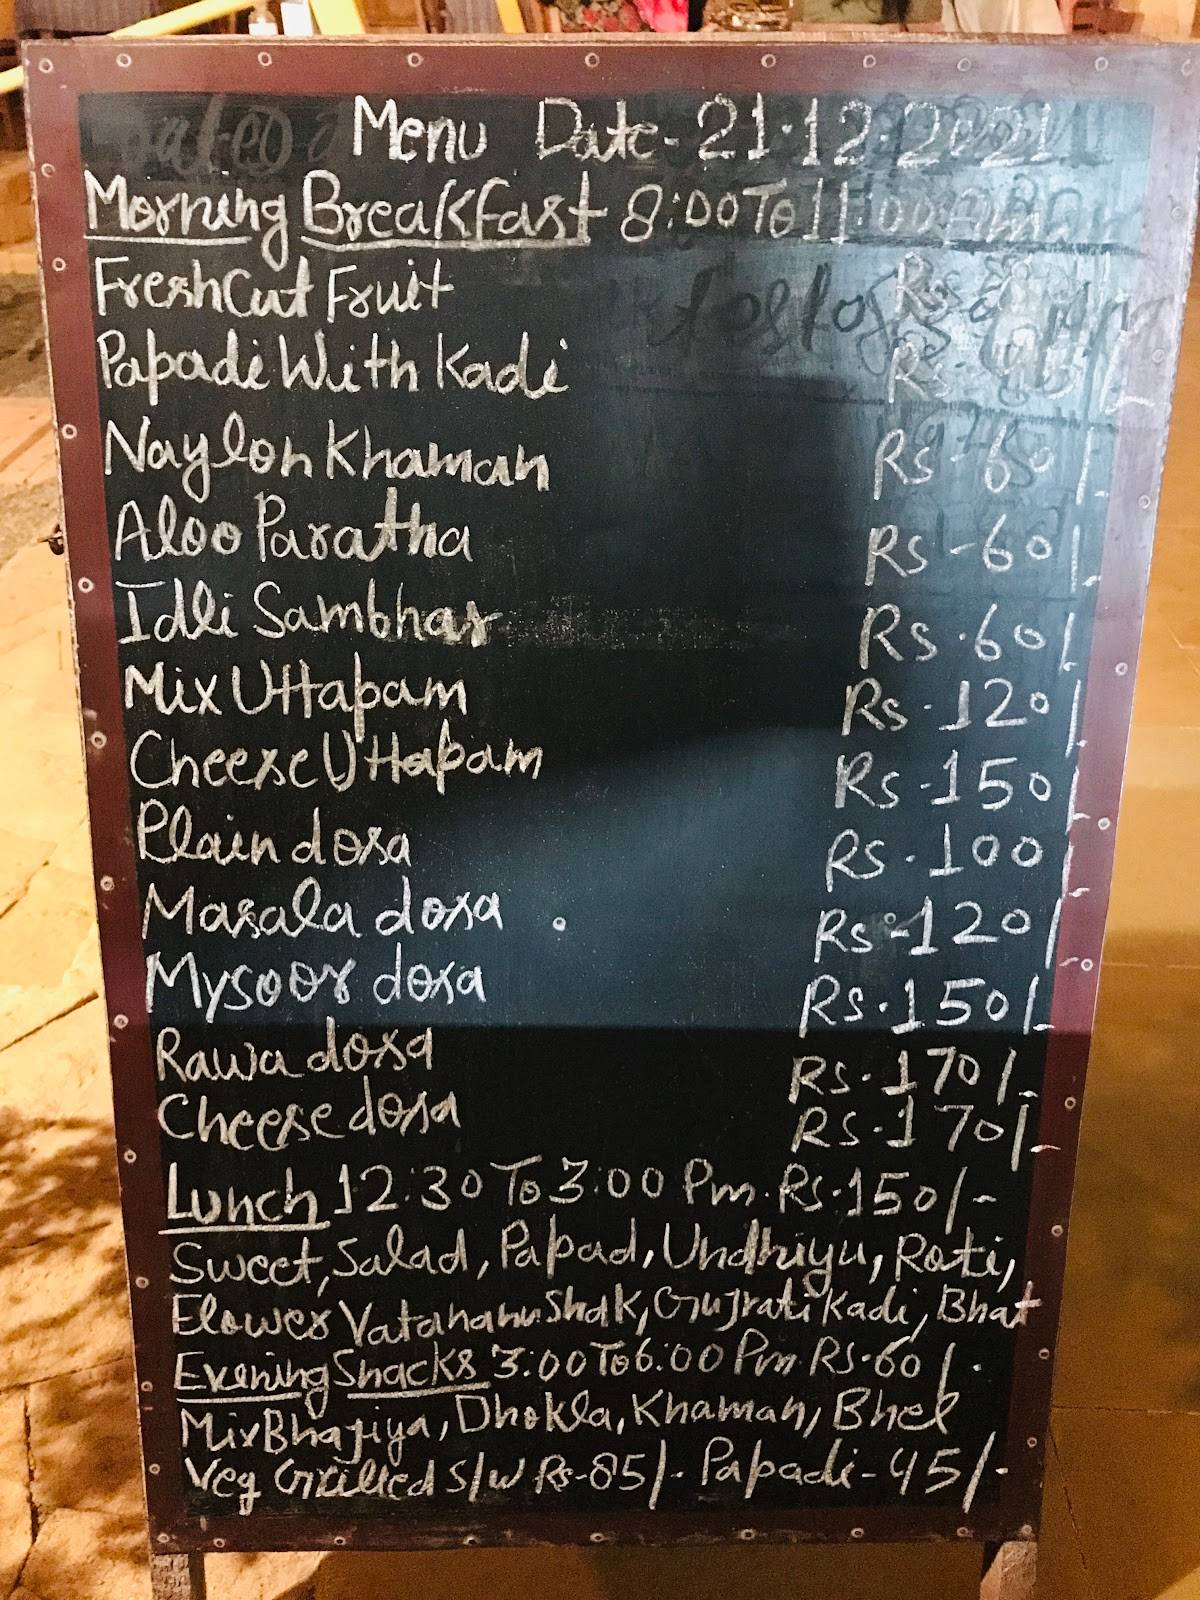 Menu Date - 21.12.2021
Morning Breakfast 8:00 To 11:00 Am
Fresh Cut Fruit Rs
Papadi With Kadi Rs 45/-
Naylon Khaman Rs - 60/-
Aloo Paratha Rs - 60/-
Idli Sambhar Rs. 60/-
Mix Uttapam Rs. 120/-
Cheese Uttapam Rs - 150/-
Plain dosa Rs. 100/-
Masala dosa . Rs - 120/-
Mysoor dosa Rs. 150/-
Rawa dosa Rs. 170/-
Cheese dosa Rs. 170/-
Lunch 12:30 To 3:00 Pm. Rs. 150/-
Sweet, Salad, Papad, Undhiyu, Roti,
Flower Vatananu Shak, Gujrati Kadi, Bhat
Evening Snacks 3:00 To 6:00 Pm. Rs. 60/-
Mix Bhajiya, Dhokla, Khaman, Bhel
Veg Grilled S/W Rs - 85/- Papadi - 45/-